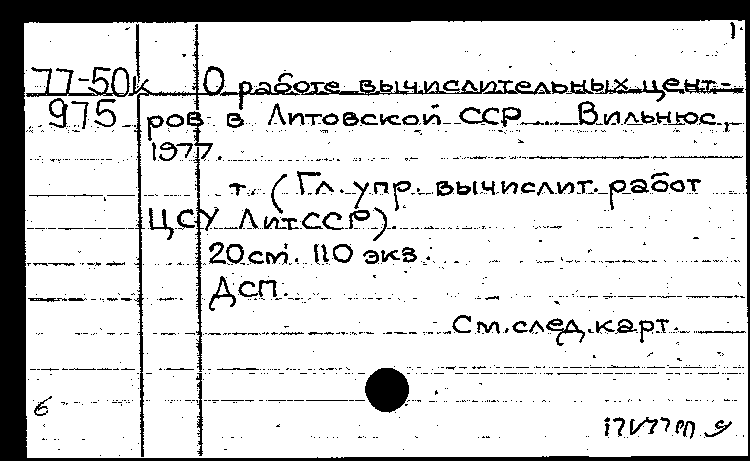 1.
77-50к О работе вычислительных цент-
975 ров в Литовской ССР ... Вильнюс,
1977.
т. (Гл. упр. вычислит. работ
ЦСУ ЛитССР).
20см. 110 экз.
ДСП.
См.след.карт.
б